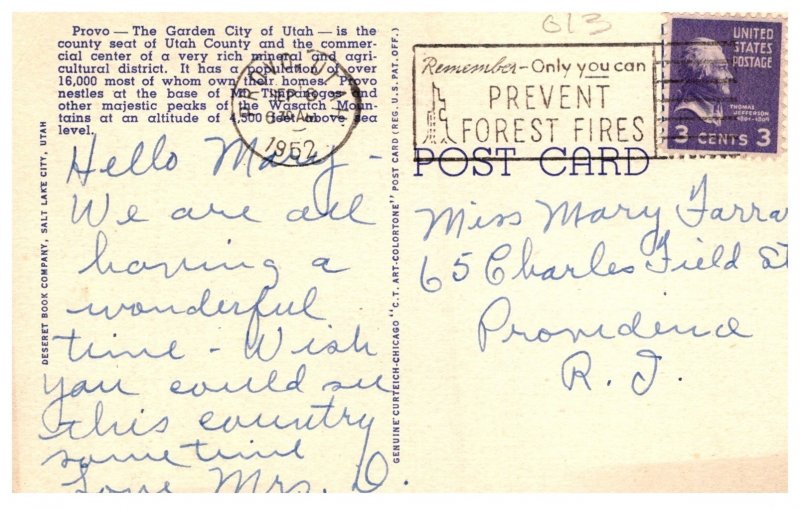 Provo — The Garden City of Utah — is the
county seat of Utah County and the commer-
cial center of a very rich mineral and agri-
cultural district. It has a population of over
16,000 most of whom own their homes. Provo
nestles at the base of Mt. Timpanogos and
other majestic peaks of the Wasatch Moun-
tains at an altitude of 4,500 feet above sea
level.
Hello Mary -
We are all
having a
wonderful
time - Wish
you could see
this country
sometime
Love Mrs. D.
DESERET BOOK COMPANY, SALT LAKE CITY, UTAH
GENUINE CURTEICH-CHICAGO "C.T. ART-COLORTONE" POST CARD (REG. U.S. PAT. OFF.)
613
PROVO, UTAH
SEP 8
AM
1952
Remember - Only you can
PREVENT
FOREST FIRES
UNITED
STATES
POSTAGE
THOMAS
JEFFERSON
1801-1809
3 CENTS 3
POST CARD
Miss Mary Farra
65 Charles Field St
Providence
R. I.